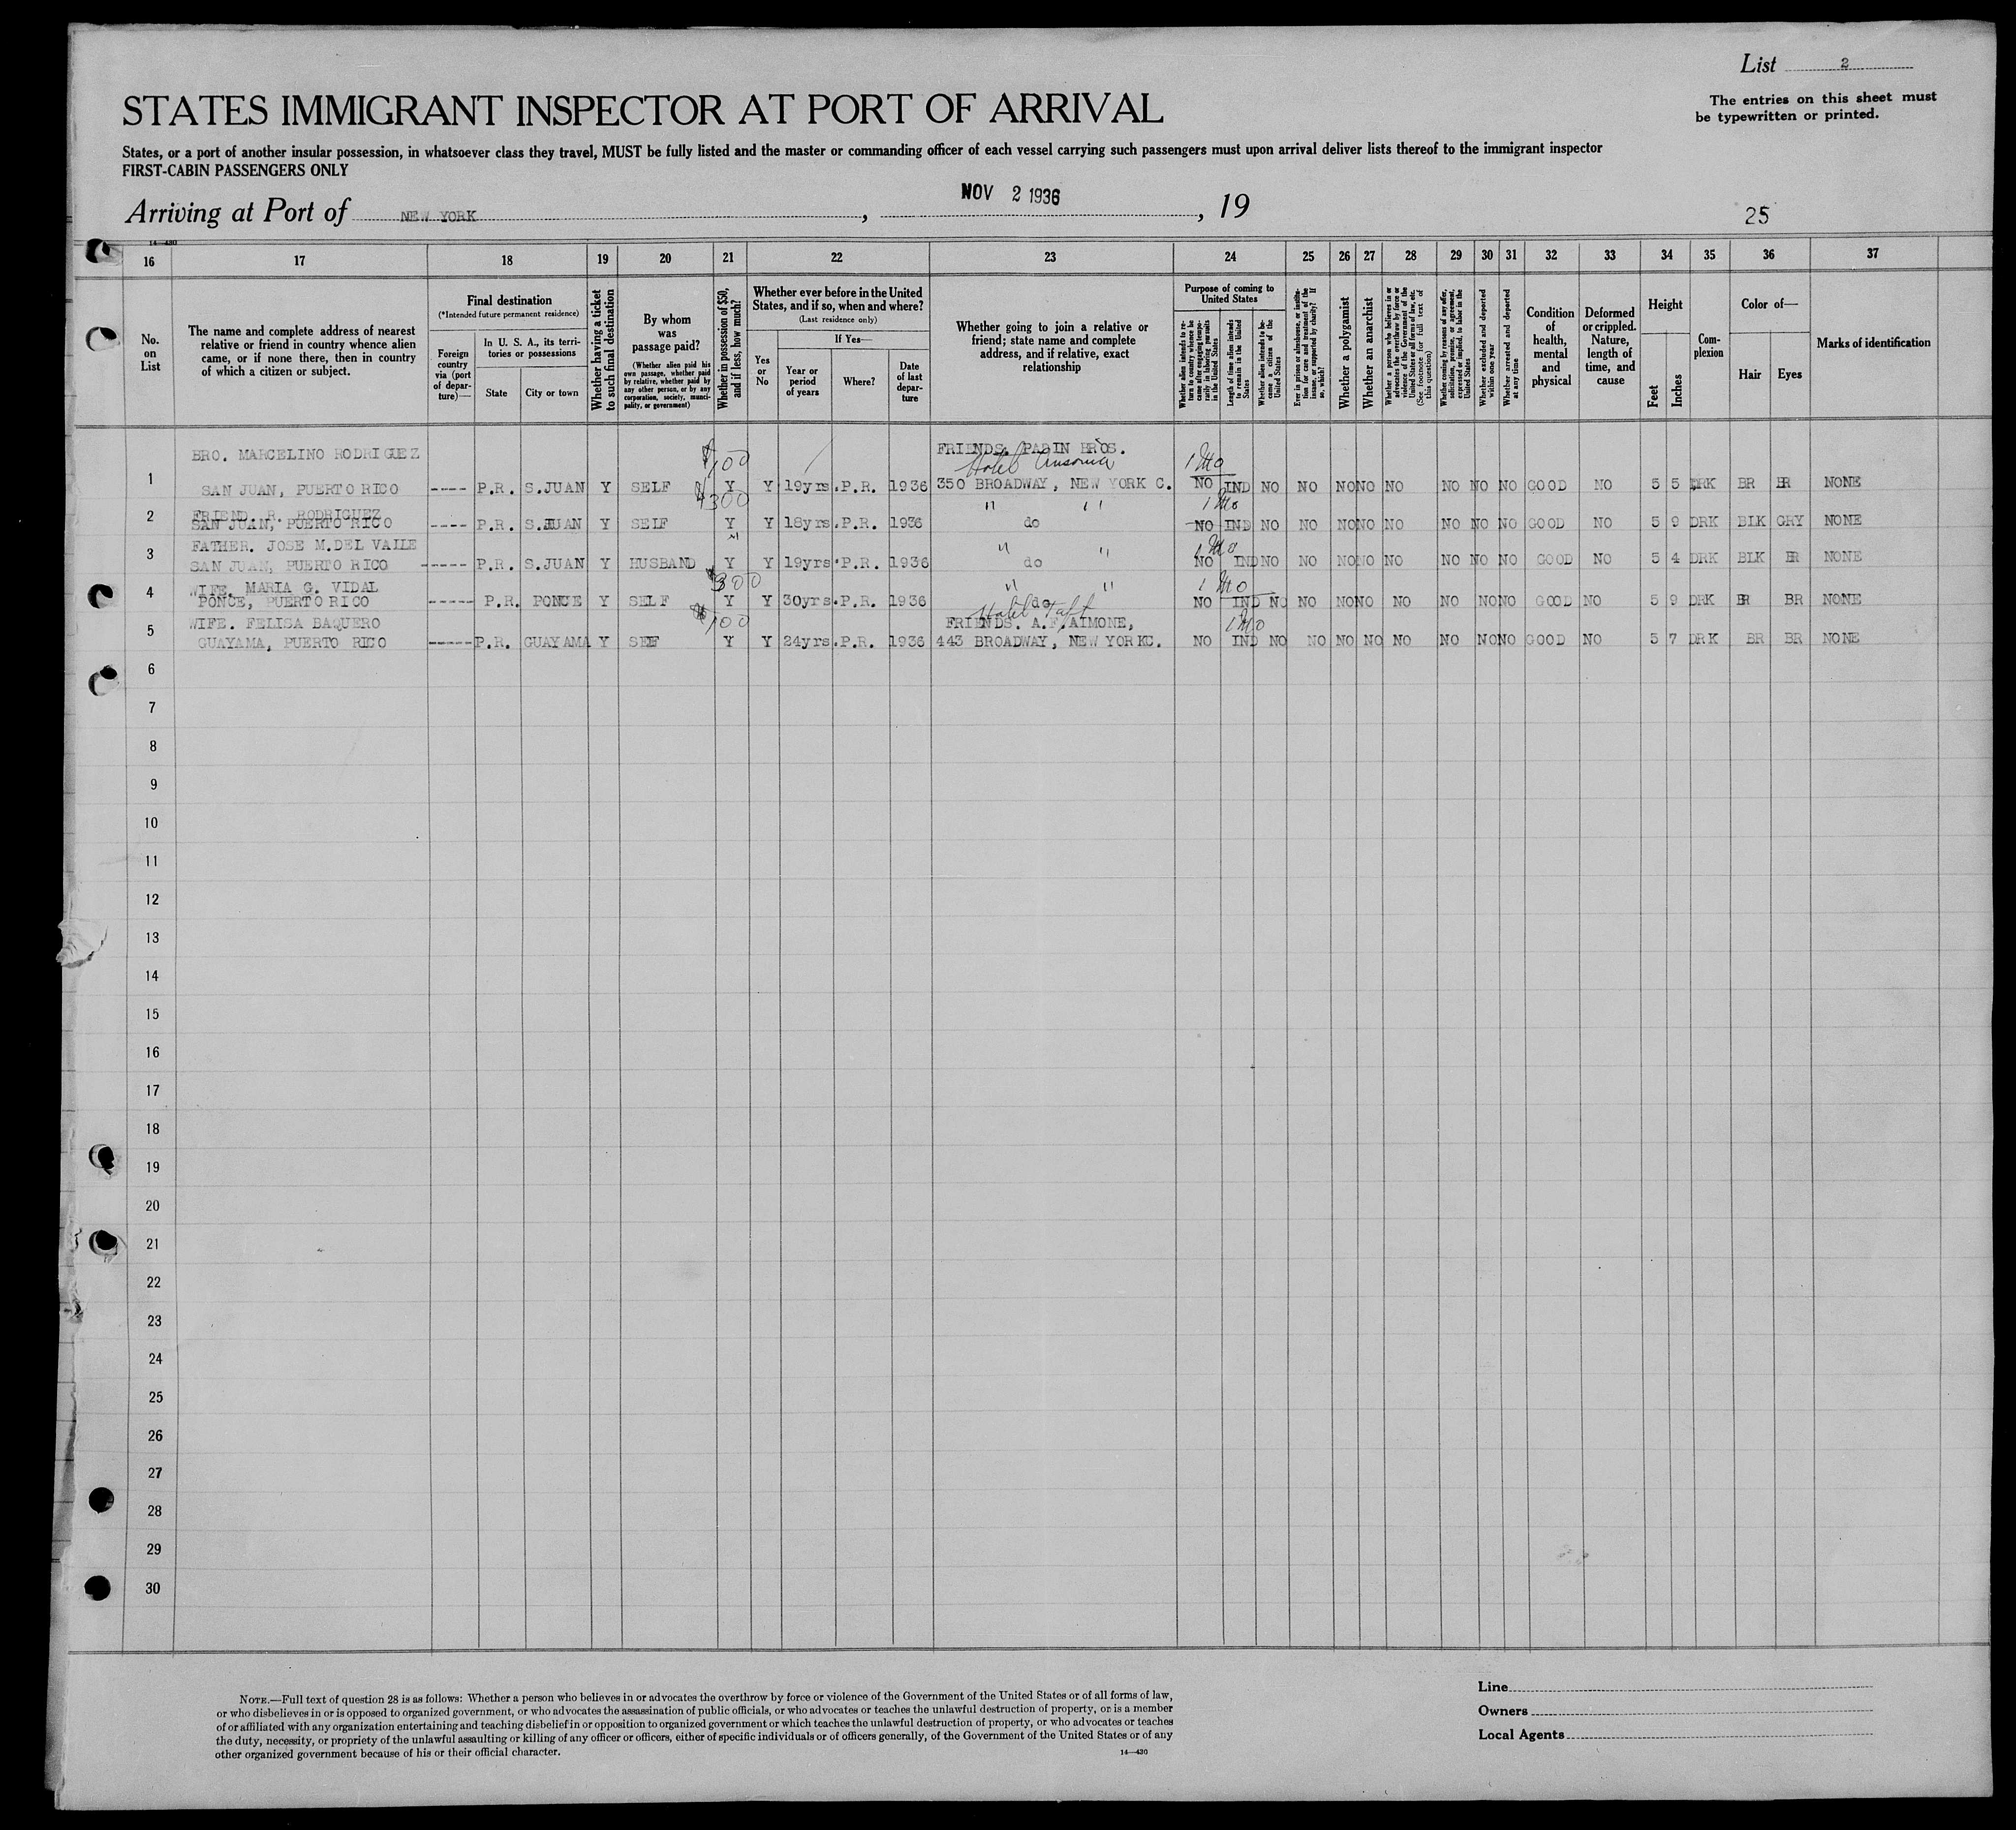 List 2
The entries on this sheet must
be typewritten or printed.
STATES IMMIGRANT INSPECTOR AT PORT OF ARRIVAL
States, or a port of another insular possession, in whatsoever class they travel, MUST be fully listed and the master or commanding officer of each vessel carrying such passengers must upon arrival deliver lists thereof to the immigrant inspector
FIRST-CABIN PASSENGERS ONLY
Arriving at Port of NEW YORK, NOV 2 1936, 19
25
14—430
16 17 18 19 20 21 22 23 24 25 26 27 28 29 30 31 32 33 34 35 36 37
No. on List
The name and complete address of nearest
relative or friend in country whence alien
came, or if none there, then in country
of which a citizen or subject.
Final destination
(*Intended future permanent residence)
Foreign country via (port of departure)—
In U. S. A., its territories or possessions
State
City or town
Whether having a ticket to such final destination
By whom was passage paid?
(Whether alien paid his own passage, whether paid by relative, whether paid by any other person, or by any corporation, society, municipality, or government)
Whether in possession of $50, and if less, how much?
Whether ever before in the United States, and if so, when and where?
(Last residence only)
Yes or No
If Yes—
Year or period of years
Where?
Date of last departure
Whether going to join a relative or
friend; state name and complete
address, and if relative, exact
relationship
Purpose of coming to United States
Whether alien intends to return to country whence he came after engaging temporarily in laboring pursuits in the United States
Length of time alien intends to remain in the United States
Whether alien intends to become a citizen of the United States
Ever in prison or almshouse, or institution for care and treatment of the insane, or supported by charity? If so, which?
Whether a polygamist
Whether an anarchist
Whether a person who believes in or advocates the overthrow by force or violence of the Government of the United States or all forms of law, etc. (See footnote for full text of this question)
Whether coming by reasons of any offer, solicitation, promise, or agreement, expressed or implied, to labor in the United States
Whether excluded and deported within one year
Whether arrested and deported at any time
Condition of health, mental and physical
Deformed or crippled. Nature, length of time, and cause
Height
Feet
Inches
Complexion
Color of—
Hair
Eyes
Marks of identification
BRO. MARCELINO RODRIGUEZ $100 FRIENDS. PADIN BROS. 1 Mo
Hotel Ansonia
1 SAN JUAN, PUERTO RICO ---- P.R. S.JUAN Y SELF Y Y 19yrs. P.R. 1936 350 BROADWAY, NEW YORK C. NO IND NO NO NO NO NO NO NO NO GOOD NO 5 5 DRK BR BR NONE
FRIEND. R. RODRIGUEZ $300 " " 1 Mo
2 SAN JUAN, PUERTO RICO ---- P.R. S.JUAN Y SELF Y Y 18yrs. P.R. 1936 do NO IND NO NO NO NO NO NO NO NO GOOD NO 5 9 DRK BLK GRY NONE
FATHER. JOSE M.DEL VALLE " " " 1 Mo
3 SAN JUAN, PUERTO RICO ----- P.R. S.JUAN Y HUSBAND Y Y 19yrs. P.R. 1936 do NO IND NO NO NO NO NO NO NO NO GOOD NO 5 4 DRK BLK BR NONE
WIFE. MARIA G. VIDAL $300 " " 1 Mo
4 PONCE, PUERTO RICO ----- P.R. PONCE Y SELF Y Y 30yrs. P.R. 1936 do NO IND NO NO NO NO NO NO NO NO GOOD NO 5 9 DRK BR BR NONE
Hotel Taft
WIFE. FELISA BAQUERO $100 FRIENDS. A.F. AIMONE, 1 Mo
5 GUAYAMA, PUERTO RICO ----- P.R. GUAYAMA Y SELF Y Y 24yrs. P.R. 1936 443 BROADWAY, NEW YORK C. NO IND NO NO NO NO NO NO NO NO GOOD NO 5 7 DRK BR BR NONE
6
7
8
9
10
11
12
13
14
15
16
17
18
19
20
21
22
23
24
25
26
27
28
29
30
NOTE.—Full text of question 28 is as follows: Whether a person who believes in or advocates the overthrow by force or violence of the Government of the United States or of all forms of law,
or who disbelieves in or is opposed to organized government, or who advocates the assassination of public officials, or who advocates or teaches the unlawful destruction of property, or is a member
of or affiliated with any organization entertaining and teaching disbelief in or opposition to organized government or which teaches the unlawful destruction of property, or who advocates or teaches
the duty, necessity, or propriety of the unlawful assaulting or killing of any officer or officers, either of specific individuals or of officers generally, of the Government of the United States or of any
other organized government because of his or their official character.
14—430
Line
Owners
Local Agents